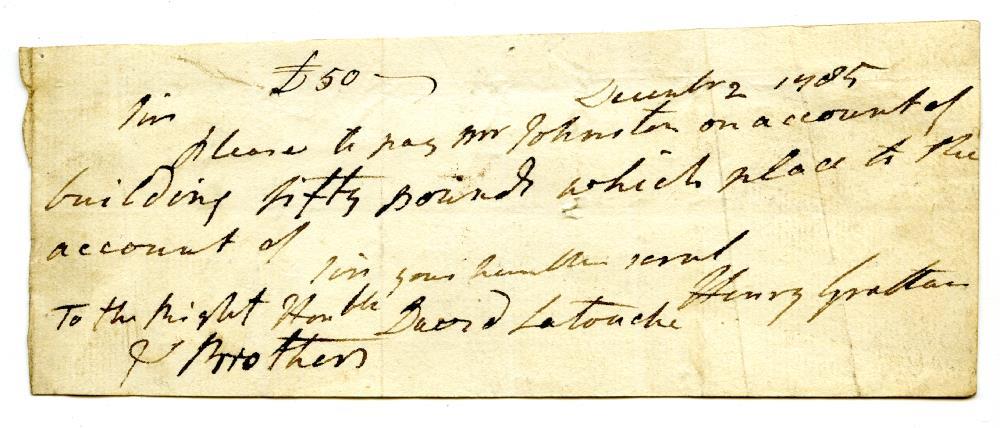 £50
December 2 1785
Sir
please to pay Mr Johnston on account of
building fifty pounds which place to the
account of
Sir your humble servt
Henry Grattan
To the Right Honble David Latouche
& Brothers